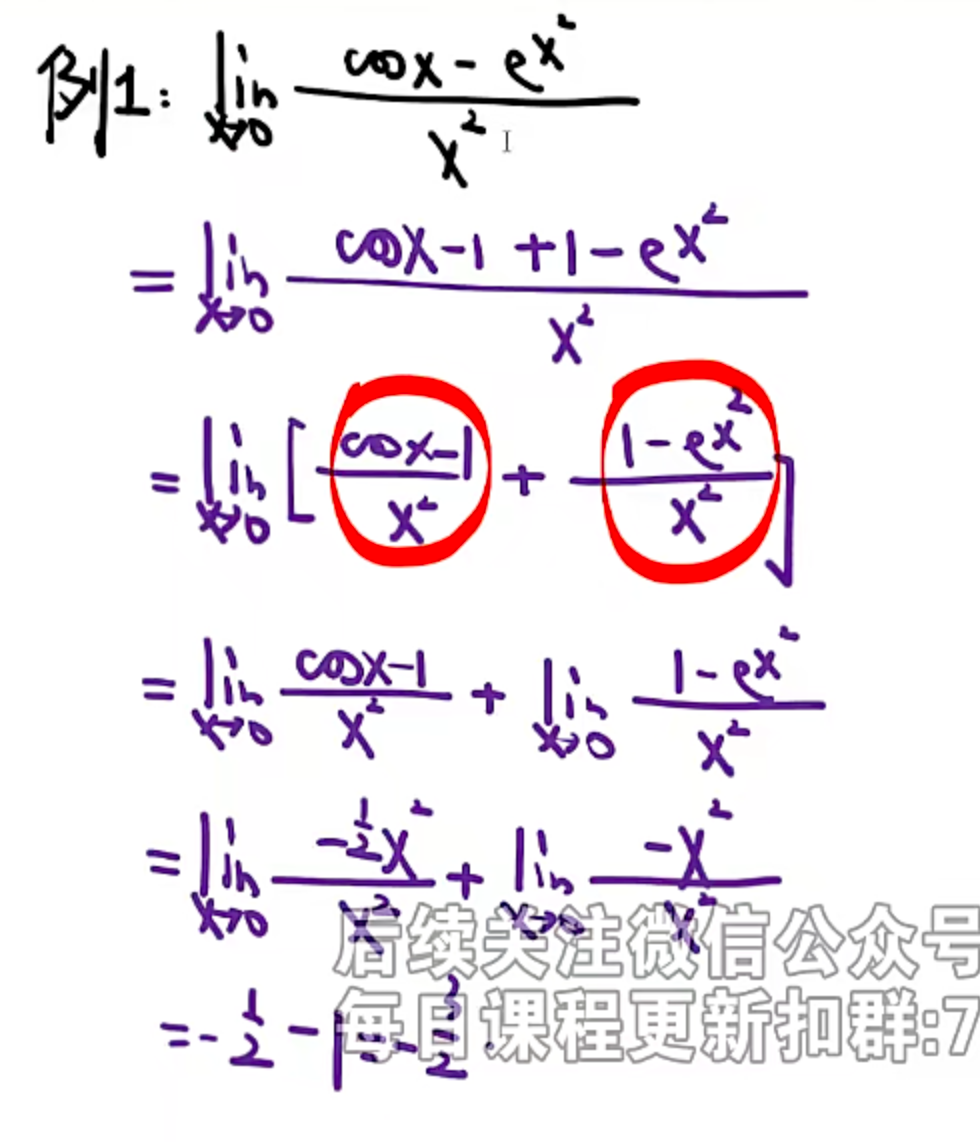 例1: lim x→0 (cosx - e^x²) / x²
= lim x→0 (cosx-1 +1-e^x²) / x²
= lim x→0 [ (cosx-1) / x² + (1-e^x²) / x² ]
= lim x→0 (cosx-1) / x² + lim x→0 (1-e^x²) / x²
= lim x→0 (-½x²) / x² + lim x→0 (-x²) / x²
后续关注微信公众号
= -½ - 1 = -3/2
每日课程更新扣群:7